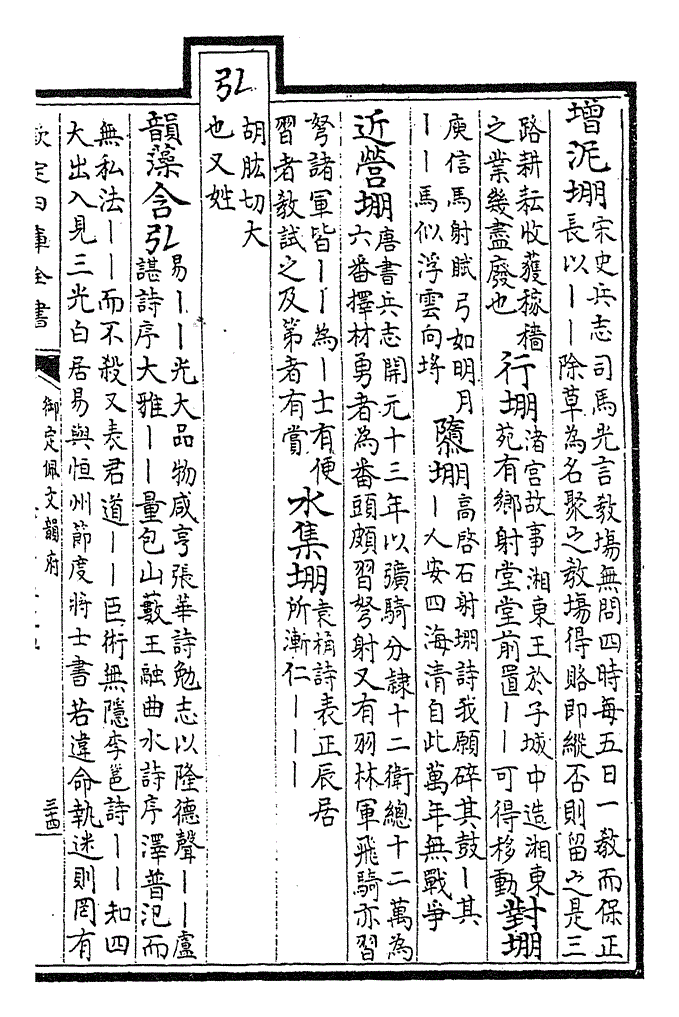 增泥堋宋史兵志司馬光言教場無問四時每五日一教而保正
長以丨丨除草為名聚之教場得賂即縱否則留之是三
路耕耘收獲稼穡
之業幾盡廢也
行堋渚宮故事湘東王於子城中造湘東
苑有鄉射堂堂前置丨丨可得移動
對堋
庾信馬射賦弓如明月
丨丨馬似浮雲向埒
隳堋明高啓石射堋詩我願碎其鼓丨其
丨人安四海清自此萬年無戰爭
近營堋唐書兵志開元十三年以彍騎分隸十二衛總十二萬為
六番擇材勇者為番頭頗習弩射又有羽林軍飛騎亦習
弩諸軍皆丨丨為丨士有便
習者教試之及第者有賞
水集堋袁桷詩表正辰居
所漸仁丨丨丨
弘
胡肱切大
也又姓
韻藻含弘易丨丨光大品物咸亨張華詩勉志以隆德聲丨丨盧
諶詩序大雅丨丨量包山藪王融曲水詩序澤普氾而
無私法丨丨而不殺又表君道丨丨臣術無隱李邕詩丨丨知四
大出入見三光白居易與恒州節度將士書若違命執迷則罔有
欽定四庫全書
御定佩文韻府
三四